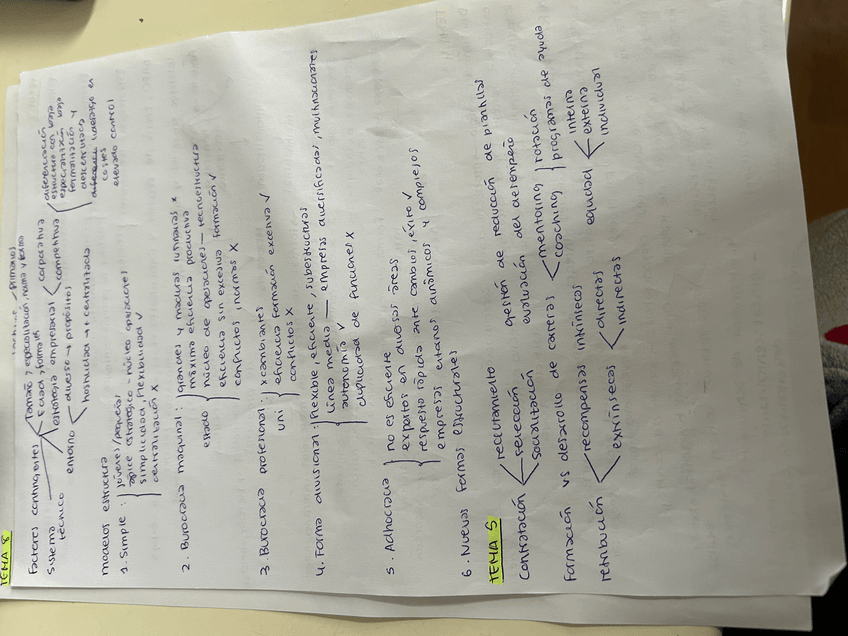 TEMA 8
Factores contingentes
Tamaño > especialización, norma y forma
Edad > formales
Sistema técnico
estrategia empresarial
corporativa
competitiva
diferenciación
estructura con baja
especialización baja
formalización y
descentraliza
liderazgo en
costes
elevado control
entorno
diverso → propósitos
hostilidad → + centralizada
Modelos estructura
1. Simple:
jóvenes/pequeñas
ápice estratégico - núcleo operaciones
simplicidad, flexibilidad ✓
centralización X
2. Burocracia maquinal:
grandes y maduras rutinarias x
máxima eficiencia productiva
estado
núcleo de operaciones — tecnoestructura
eficiencia sin excesiva formación ✓
conflictos, normas X
3. Burocracia profesional:
x cambiantes
uni
eficiencia formación excesiva ✓
conflictos X
4. Forma divisional:
flexible, eficiente, subestructuras
línea media — empresas diversificadas, multinacionales
autonomía ✓
duplicidad de funciones X
5. Adhocracia
no es eficiente
expertos en diversas áreas
respuesta rápida ante cambios, éxito ✓
empresas entornos dinámicos y complejos
6. Nuevas formas estructurales
TEMA 5
Contratación
reclutamiento
selección
socialización
gestión de reducción de plantillas
evaluación del desempeño
Formación vs desarrollo de carreras
mentoring
coaching
rotación
programas de ayuda
retribución
recompensas intrínsecas
extrínsecas
directas
indirectas
equidad
interna
externa
individual